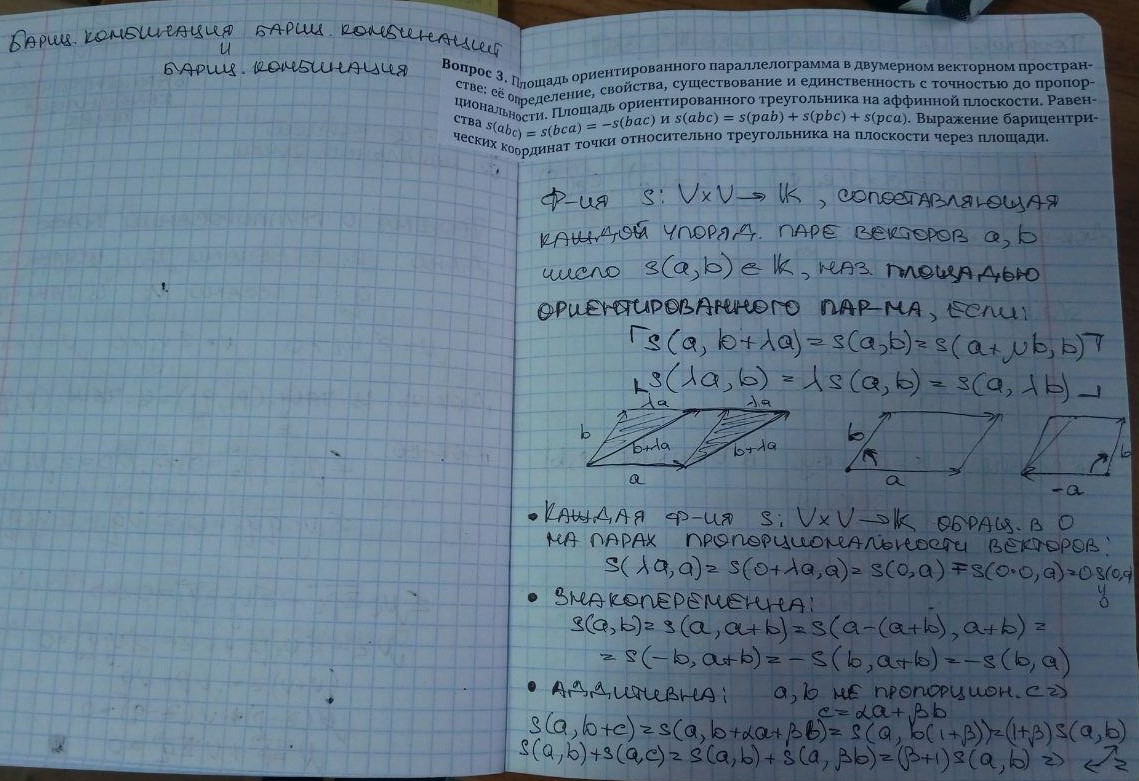 БАРИЦ. КОМБИНАЦИЯ БАРИЦ. КОМБИНАЦИЙ
И
БАРИЦ. КОМБИНАЦИЯ
Вопрос 3. Площадь ориентированного параллелограмма в двумерном векторном простран-
стве: её определение, свойства, существование и единственность с точностью до пропор-
циональности. Площадь ориентированного треугольника на аффинной плоскости. Равен-
ства s(abc) = s(bca) = −s(bac) и s(abc) = s(pab) + s(pbc) + s(pca). Выражение барицентри-
ческих координат точки относительно треугольника на плоскости через площади.
Ф-ИЯ S: V×V → 𝕜, СОПОСТАВЛЯЮЩАЯ
КАЖДОЙ УПОРЯД. ПАРЕ ВЕКТОРОВ a, b
ЧИСЛО s(a,b) ∈ 𝕜, НАЗ. ПЛОЩАДЬЮ
ОРИЕНТИРОВАННОГО ПАР-МА, ЕСЛИ:
⌈s(a, b+λa) = s(a,b) = s(a+μb, b)⌉
⌊s(λa, b) = λs(a,b) = s(a, λb)⌋
λa λa
b b+λa b+λa b b
a a -a
• КАЖДАЯ Ф-ИЯ S: V×V → 𝕜 ОБРАЩ. В 0
НА ПАРАХ ПРОПОРЦИОНАЛЬНОСТИ ВЕКТОРОВ:
s(λa, a) = s(0+λa, a) = s(0, a) = s(0·0, a) = 0 s(0,a)
0
• ЗНАКОПЕРЕМЕННА:
s(a,b) = s(a, a+b) = s(a-(a+b), a+b) =
= s(-b, a+b) = -s(b, a+b) = -s(b, a)
• АДДИТИВНА: a, b НЕ ПРОПОРЦИОН. <=>
c = αa + βb
s(a, b+c) = s(a, b+αa+βb) = s(a, b(1+β)) = (1+β)s(a,b)
s(a,b)+s(a,c) = s(a,b) + s(a, βb) = (β+1)s(a,b) =>